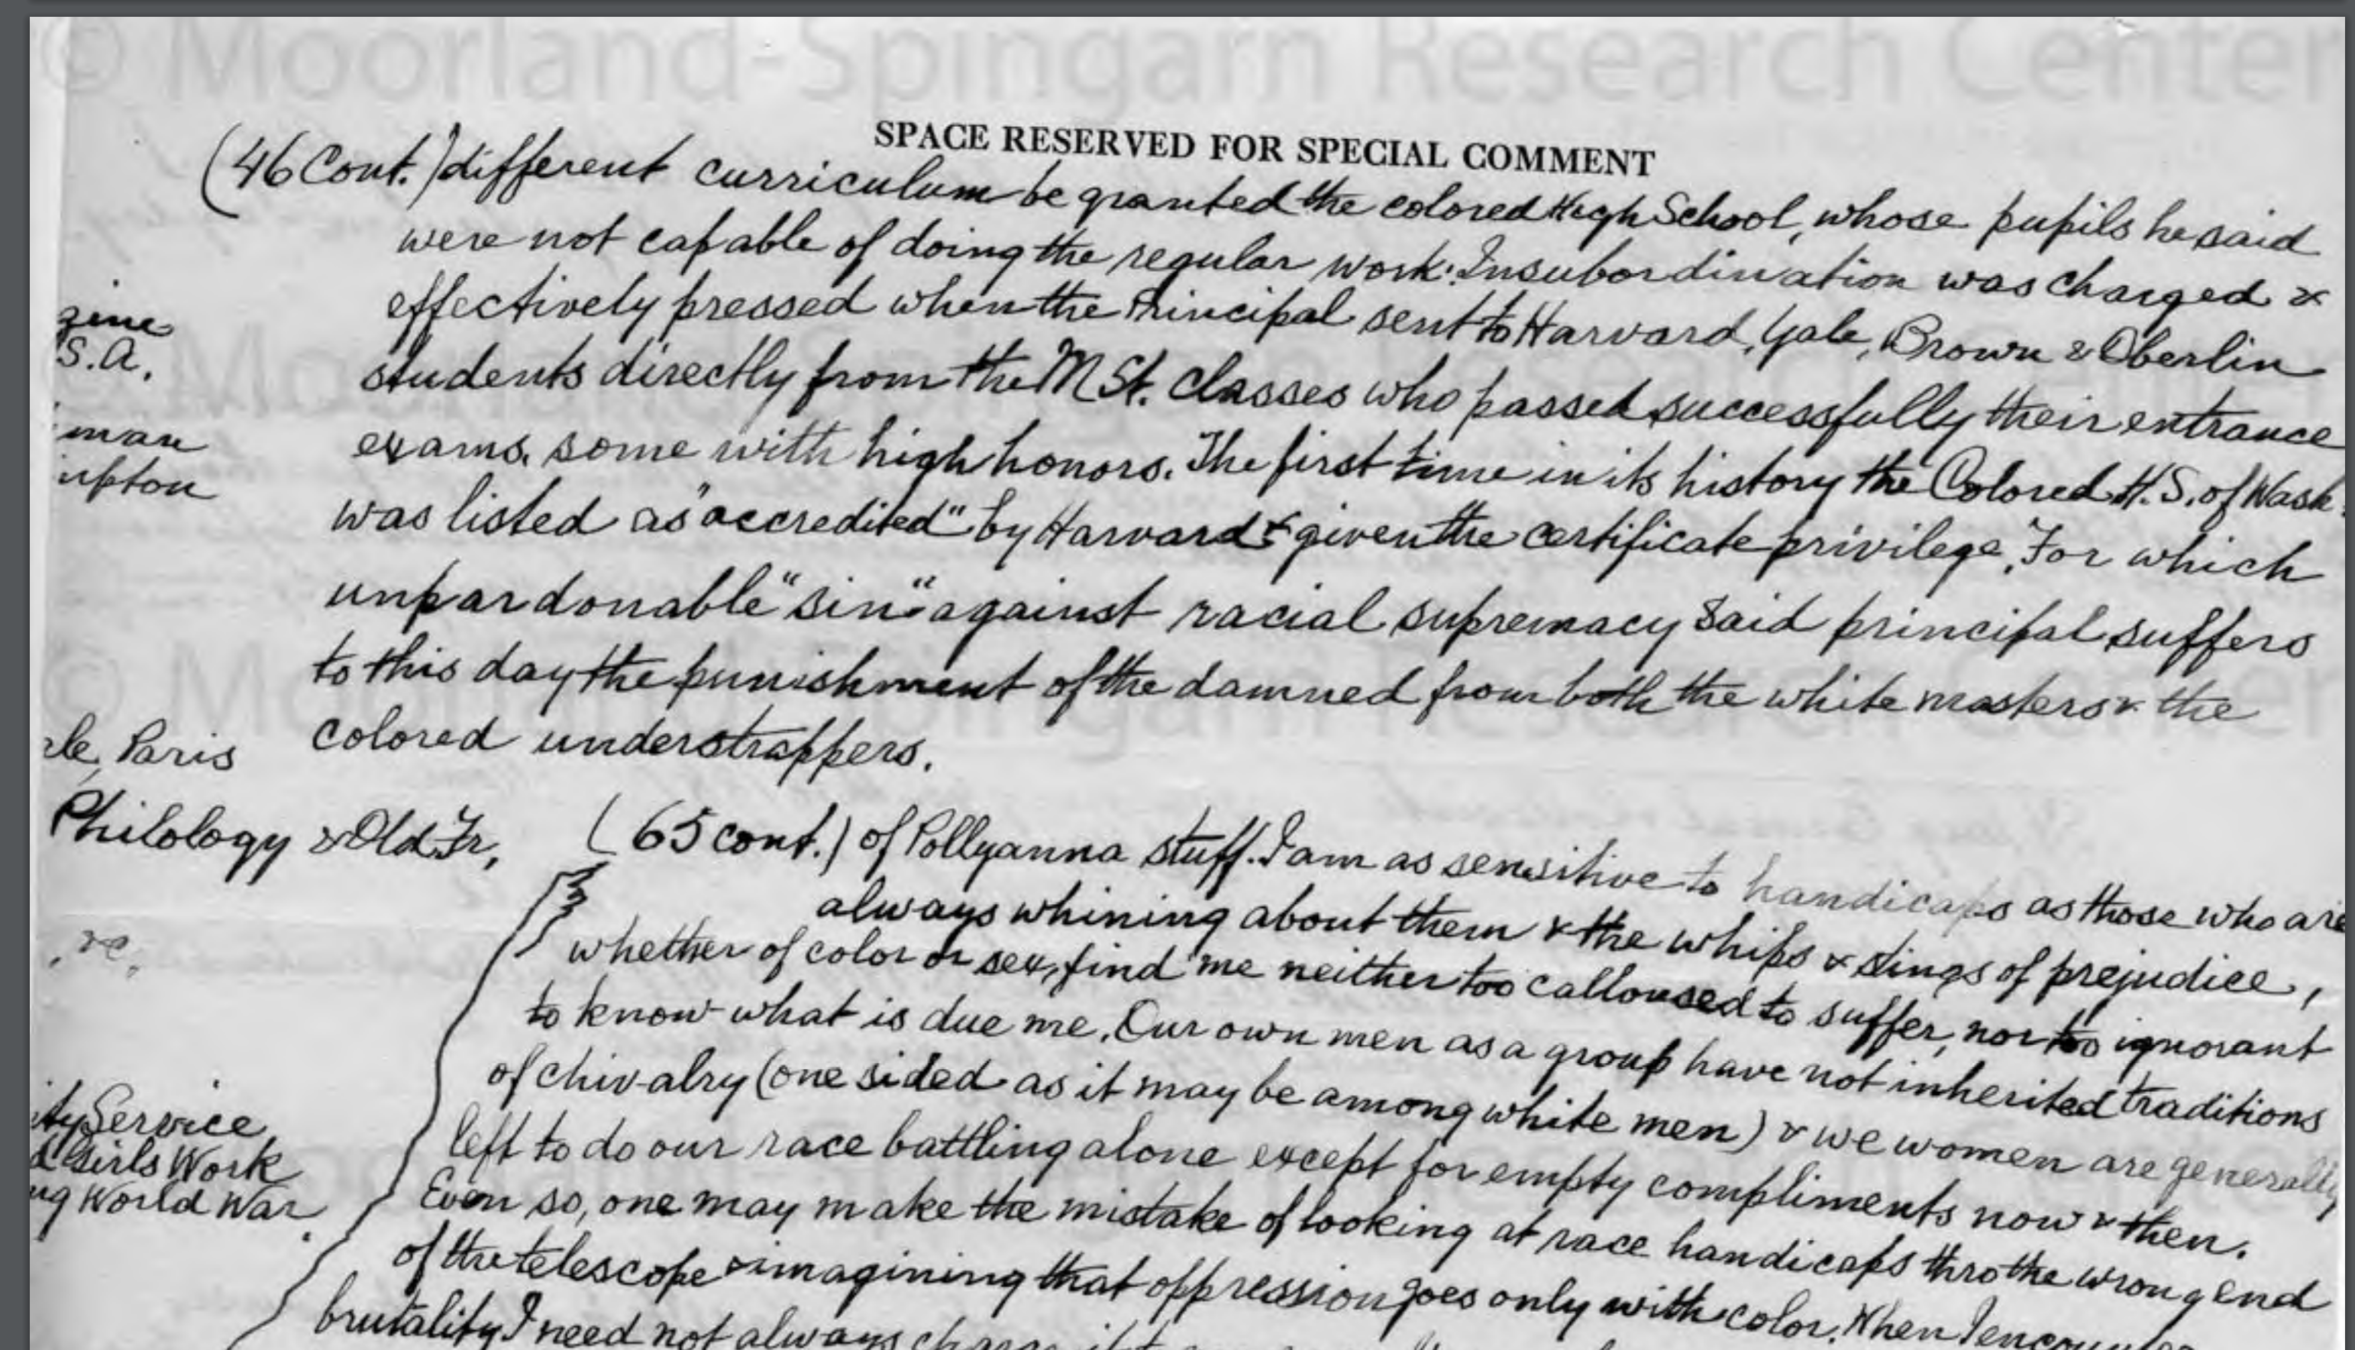 © Moorland-Spingarn Research Center
SPACE RESERVED FOR SPECIAL COMMENT
(46 Cont.) different curriculum be granted the colored High School, whose pupils he said
were not capable of doing the regular work. Insubordination was charged &
effectively pressed when the Principal sent to Harvard, Yale, Brown & Oberlin
students directly from the M St. classes who passed successfully their entrance
exams, some with high honors. The first time in its history the Colored H. S. of Wash.
was listed as "accredited" by Harvard & given the certificate privilege. For which
unpardonable "sin" against racial supremacy said principal suffers
to this day the punishment of the damned from both the white masters & the
colored understrappers.
(65 cont.) of Pollyanna stuff. I am as sensitive to handicaps as those who are
always whining about them & the whips & stings of prejudice,
whether of color or sex, find me neither too calloused to suffer, nor too ignorant
to know what is due me. Our own men as a group have not inherited traditions
of chivalry (one sided as it may be among white men) & we women are generally
left to do our race battling alone except for empty compliments now & then.
Even so, one may make the mistake of looking at race handicaps thro the wrong end
of the telescope & imagining that oppression goes only with color. When I encounter
brutality I need not always
zine
S.A.
man
upton
ale, Paris
Philology & Old Fr,
, &c,
ity Service
d Girls Work
ng World War